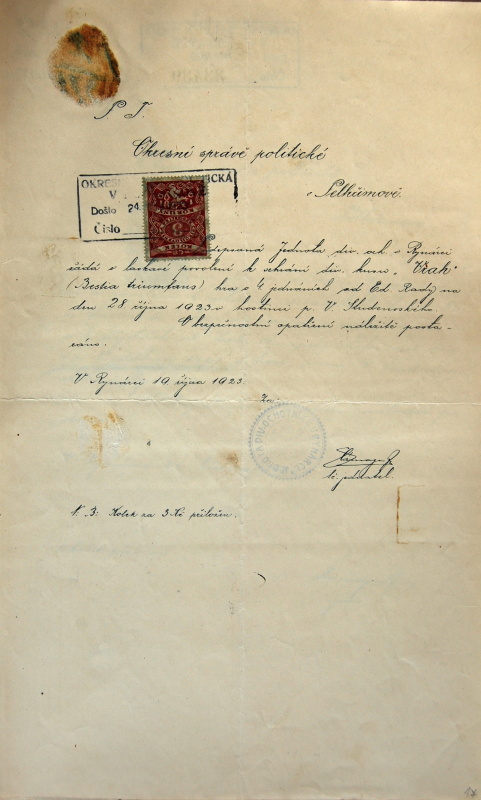 P. T.
Okresní správě politické
v Pelhřimově.
OKRES
V
Došlo 24.
Číslo
3
Jednota div. och. v Rynárci
žádá o laskavé povolení k sehrání div. kusu „Vrah“
(Bestia triumfans) hra o 4 jednáních od Ed. Rady na
den 28. října 1923 v hostinci p. V. Studenovského
O bezpečnostní opatření náležitě posta-
ráno.
V Rynárci 19 října 1923.
Za
t. č. jednatel.
N. B: Kolek za 3 Kč přiložen.